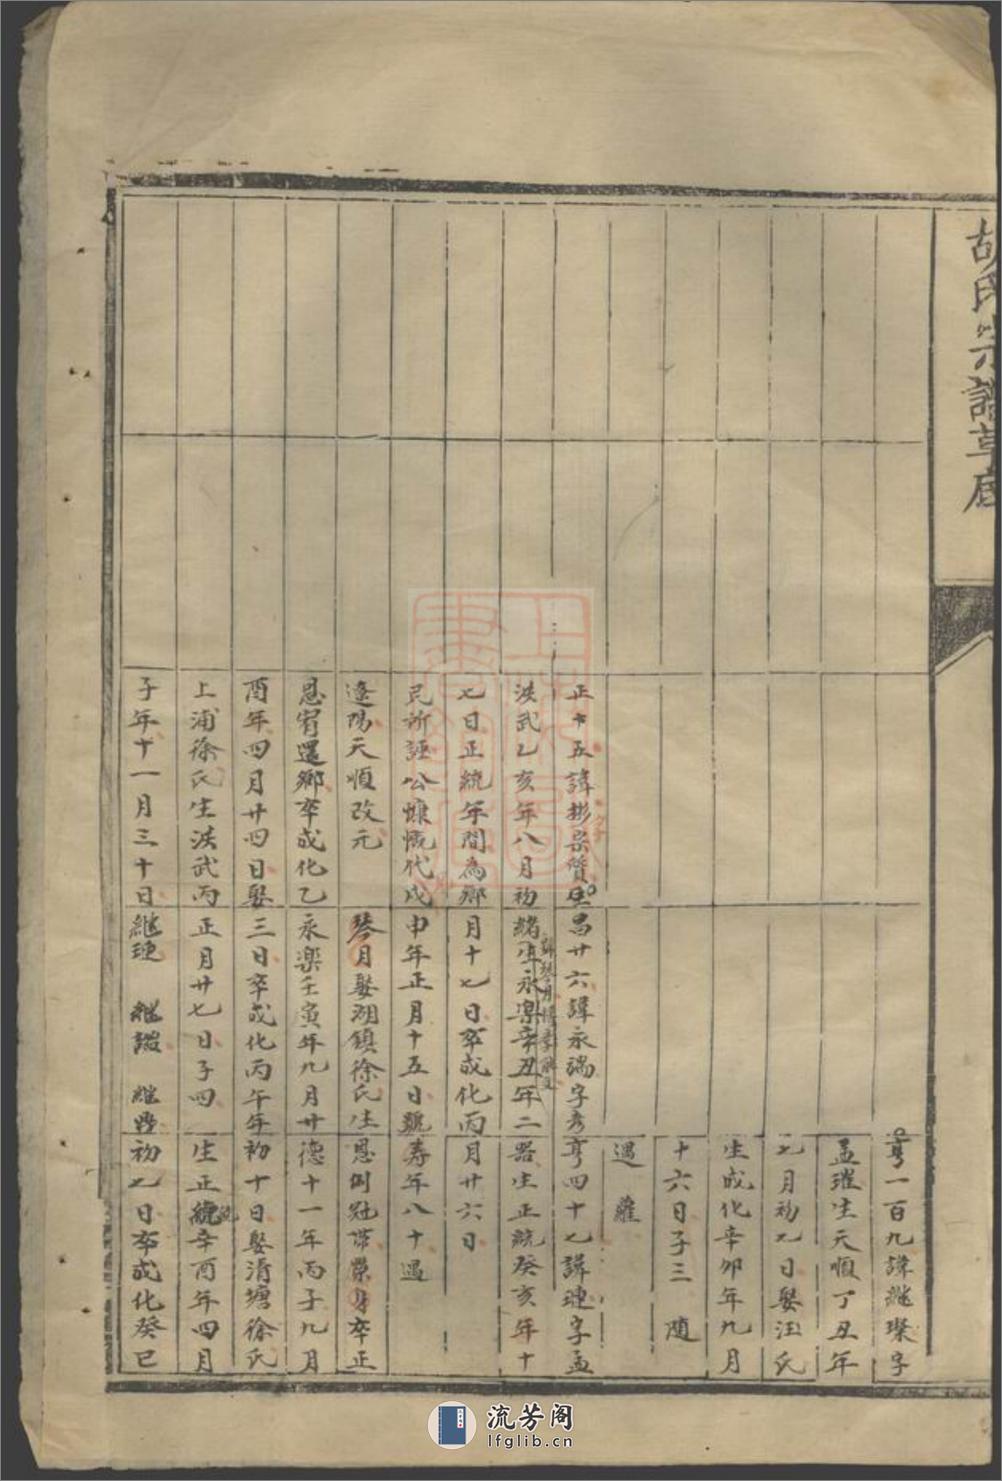 胡氏宗譜草底
亨一百九諱継璨字
孟璀生天順丁丑年
七月初九日娶汪氏
生成化辛卯年九月
十六日子三 随
遇 蘿
正十五諱彬宗質
洪武乙亥年八月初
七日正統年間為鄉
民所誣公慷慨代戍
遼陽天順改元
恩宥還鄉卒成化乙
酉年四月廿四日娶
上浦徐氏生洪武丙
子年十一月三十日
昌廿六諱永端字彥
緒生永樂辛丑年二
月十七日卒成化丙
申年正月十五日號
琴月娶湖鎮徐氏生
永樂壬寅年九月廿
三日卒成化丙午年
正月廿七日子四
継璉 継諮 継
亨四十七諱璉字孟
器生正統癸亥年十
月廿六日
壽年八十遇
恩例冠帶榮身卒正
德十一年丙子九月
初十日娶清塘徐氏
生正統辛酉年四月
初七日卒成化癸巳
流芳阁
lfglib.cn